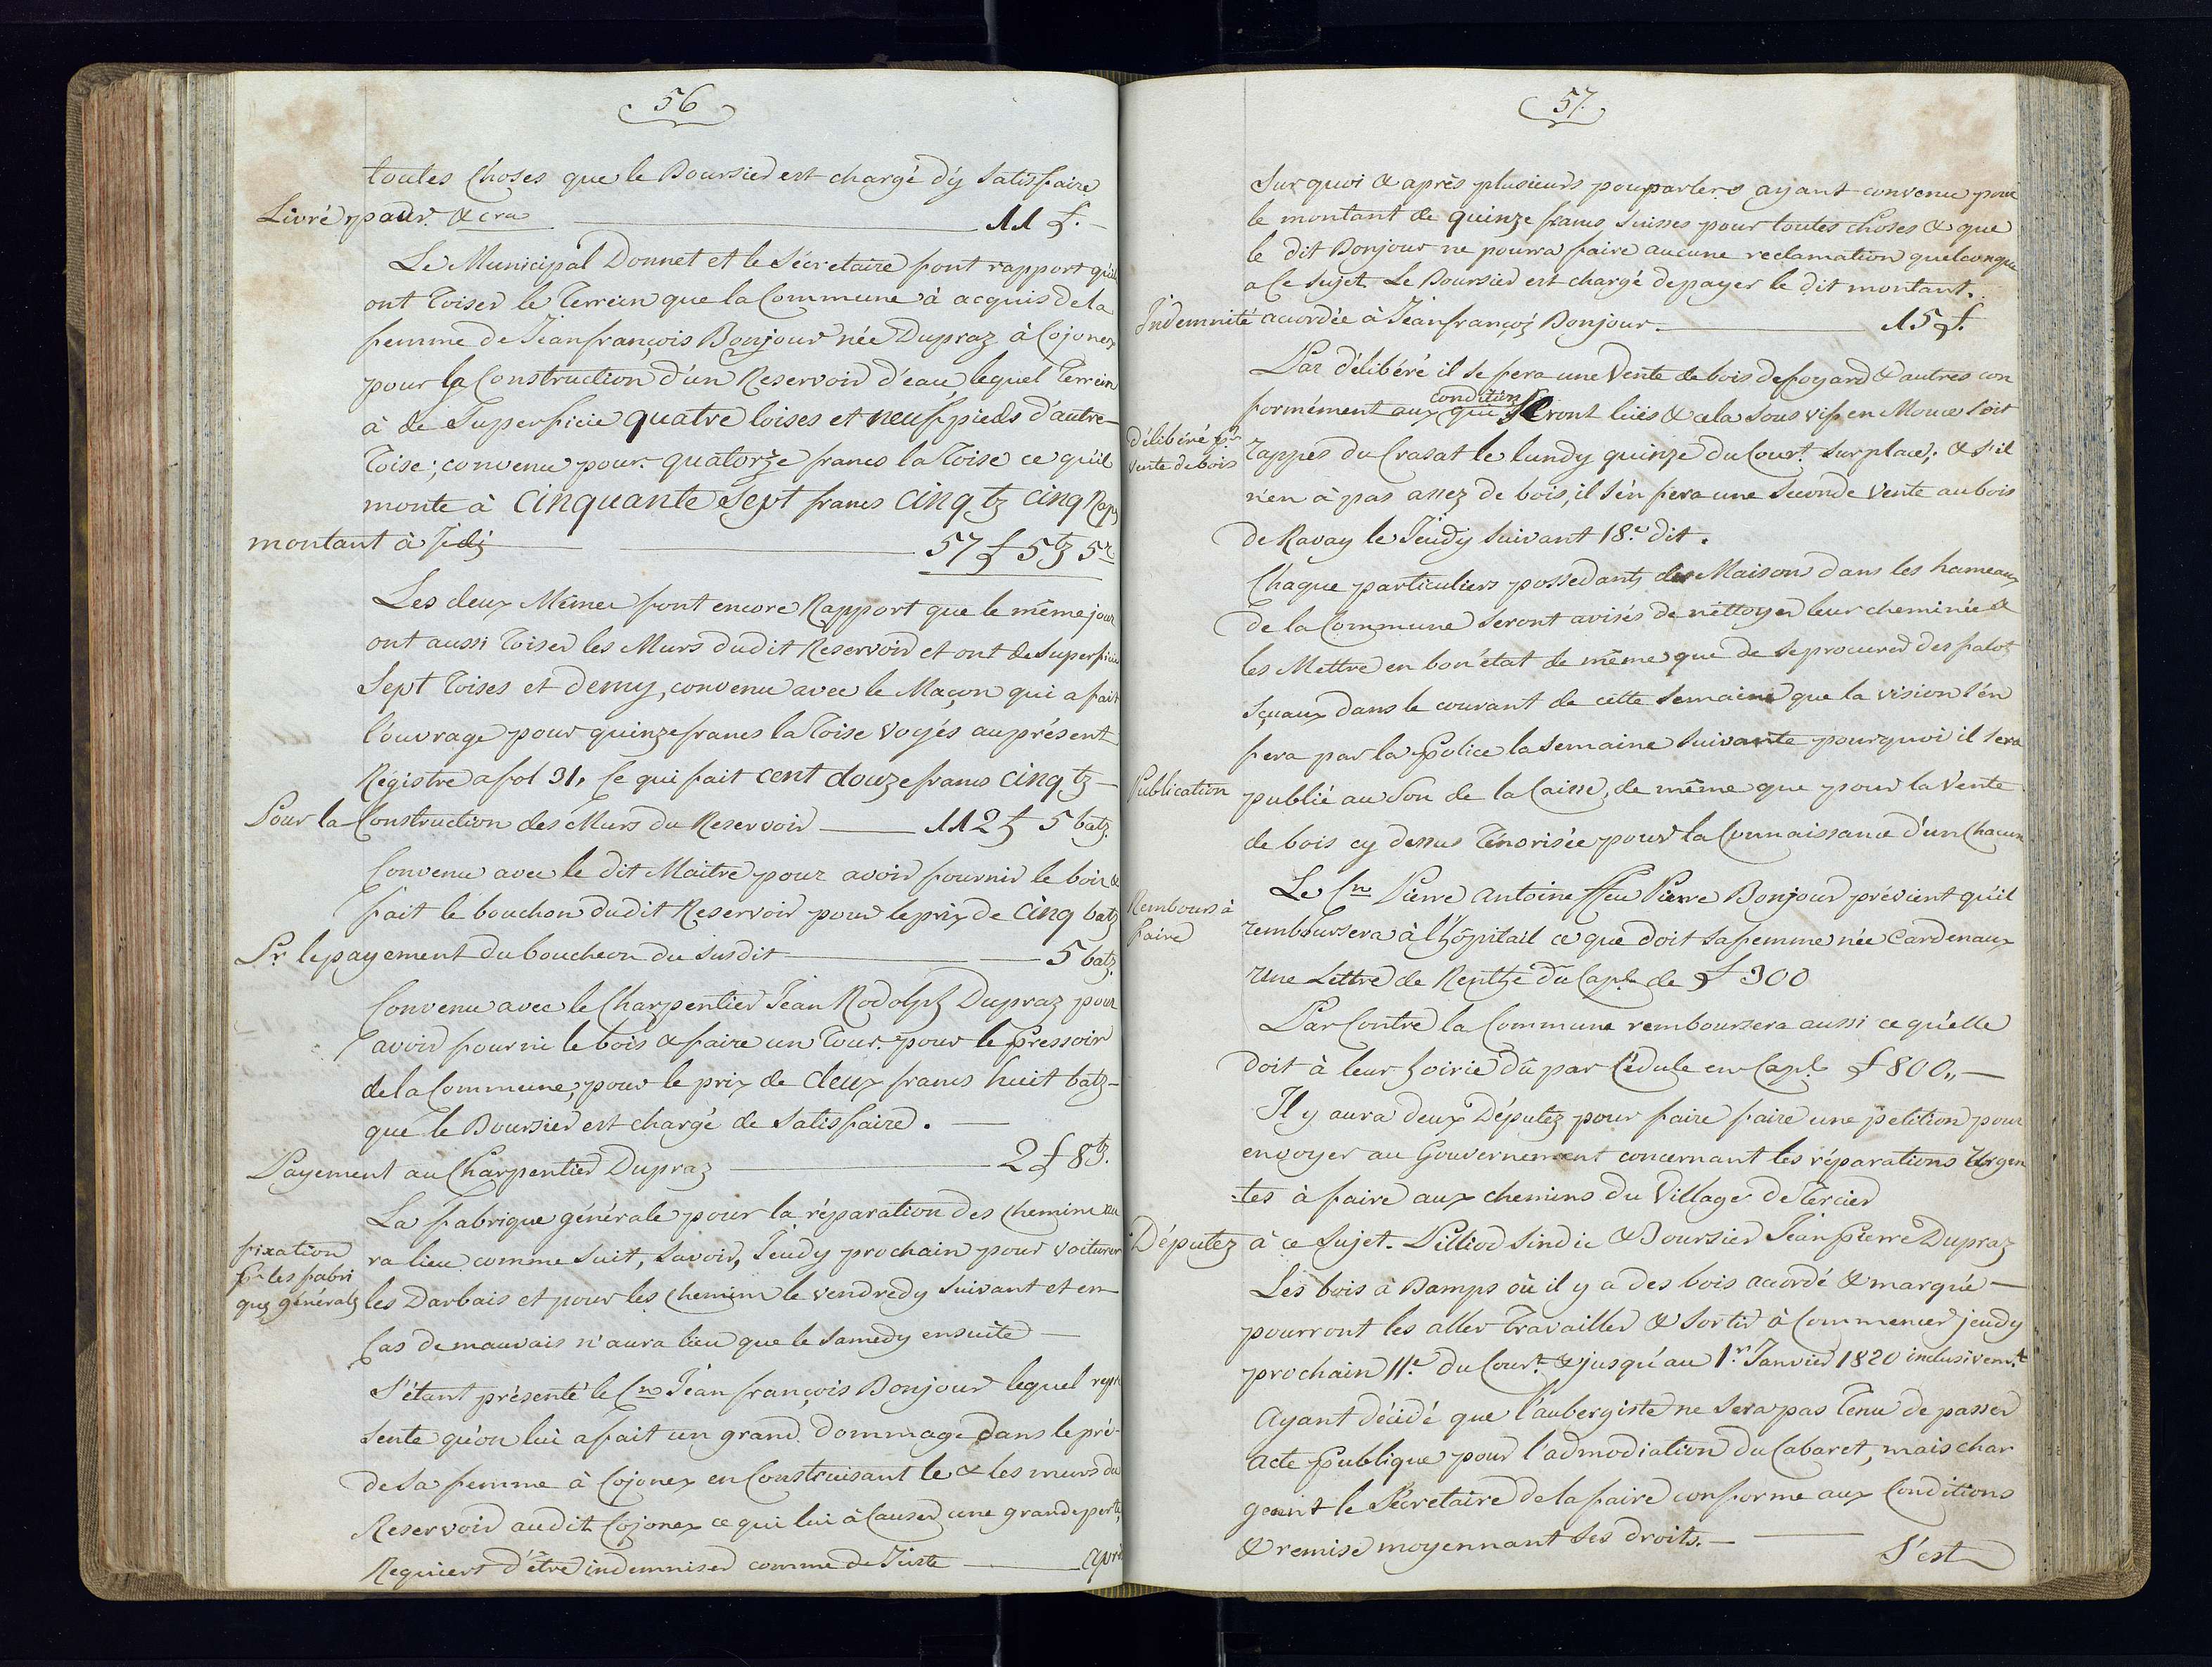 56
toutes Choses que le Boursier est chargé d'y Satisfaire
Livré pour &cra 11 f.
Le Municipal Donnet et le Sécretaire font rapport qu'ils
ont Toiser le Terrein que la Commune à acquis de la
femme de Jeanfrançois Bonjour née Dupraz à Cojonex
pour la Construction d'un Reservoir d'eau, lequel Terrein
à de Superficie quatre toises et neuf pieds d'autre
Toise; convenu pour quatorze francs la Toise ce qu'il
monte à cinquante Sept francs cinq tz cinq Rap
montant à 57 f 5 tz 5 r
Les deux Mêmes font encore Rapport que le même jour
ont aussi Toiser les Murs dudit Reservoir et ont de Superficie
Sept Toises et demy, convenu avec le Maçon qui a fait
l'ouvrage pour quinze francs la Toise voyés au présent
Régistre a fol 31, Ce qui fait cent douze francs cinq tz
Pour la Construction des Murs du Reservoir 112 f 5 batz
Convenu avec le dit Maitre pour avoir fournir le bois &
fait le bouchon dudit Reservoir pour le prix de cinq batz
Pr. le payement du boucheon du susdit 5 batz.
Convenu avec le Charpentier Jean Rodolph Dupraz pour
avoir fourni le bois & faire un Tour pour le pressoir
de la Commune, pour le prix de deux francs huit batz
que le Boursier est chargé de Satisfaire.
Payement au Charpentier Dupraz 2 f 8 tz.
La fabrique générale pour la réparation des chemins au
fixation
pr. les fabri
ques générals
ra lieu comme suit, Savoir, Jeudy prochain pour voiturer
les Darbais et pour les chemins le vendredy suivant et en
Cas de mauvais n'aura lieu que le Samedy ensuite
S'étant présenté le Cn Jean françois Bonjour lequel repré
sente qu'on lui a fait un grand dommage dans le pré
de sa femme à Cojonex en Construisant le & les murs du
Reservoir audit Cojonex ce qui lui à Causer une grande perte,
Requiert d'être indemniser comme de Juste après
57.
Sur quoi & après plusieurs pourparlers ayant convenu pour
le montant de quinze francs Suisses pour toutes choses & que
le dit Bonjour ne pourra faire aucune reclamation quelconque
a Ce sujet. Le Boursier est chargé de payer le dit montant.
Indemnité acordée à Jeanfrançois Bonjour. 15 f.
Par délibéré il se fera une Vente de bois de foyard & autres con
condition
formément aux qui Seront luës & cela sous vis en Mouces Soit
délibéré pr
vente de bois
rappes du Crasat le lundy quinze du Court. sur place. & s'il
n'en à pas assez de bois, il s'en fera une seconde vente au bois
de Ravay le Jeudy suivant 18.e dit.
Chaque particuliers possedants des Maison dans les hameaux
de la Commune seront avisés de néttoyer leur cheminée &
les Mettre en bon état de même que de se procurer des falot
Sçuaux dans le courant de cette semaine que la vision s'en
fera par la police la semaine suivante pourquoi il sera
Publication
publié au Son de la Caisse, de même que pour la Vente
de bois cy dessus Ténorisée pour la Connaissance d'un Chacun
Rembours à
faire
Le Cn Pierre Antoine ffeu Pierre Bonjour prévient qu'il
remboursera à l'hôpitail ce que doit sa femme née Cardenaux
une Lettre de Renthe du Capl de f 300
Par Contre la Commune remboursera aussi ce qu'elle
doit à leur hoirie dû par Cédule en Capl. f 800,,
Il y aura deux Députez pour faire faire une petition pour
envoyer au Gouvernement concernant les réparations urgen
-tes à faire aux chemins du Village de Tercier
Députez à ce Sujet. Pilliod Sindic & Boursier Jean pierre Dupraz
Les bois à Bamps où il y a des bois accordé & marqué
pourront les aller Travailler & Sortir à Commencer jeudy
prochain 11.e du Court. & jusqu'au 1.r Janvier 1820 inclusivemt.
Ayant décidé que l'aubergiste ne sera pas Tenu de passer
Acte publique pour l'admodiation du Cabaret, mais char
geant le Sécretaire de la faire conforme aux Conditions
& remise moyennant ses droits.
S'est